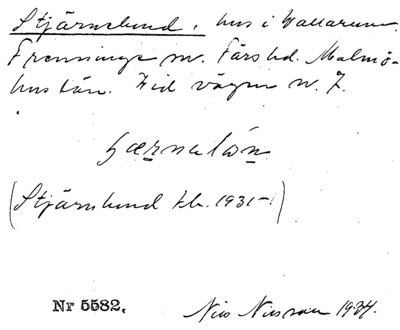 Stjärnelund, hus i Vallarum.
Frenninge sn. Färs hd. Malmö-
hus län. Vid vägen n. 7.
(Stjärnelund kb. 1931-)
Nr 5582. Nils Nilsson 1934.